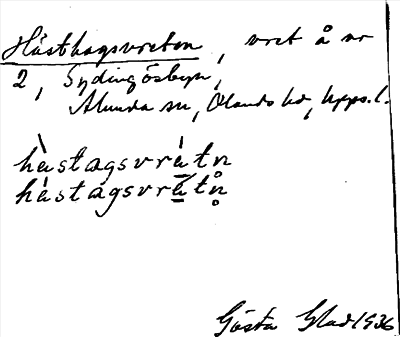 Hästhagsvreten, vret å nr
2, Sydingösbyn,
Alunda sn, Olands hd, Upps. l.
hàstagsvrátn
hástagsvrätn̥
Gösta Glad 1936